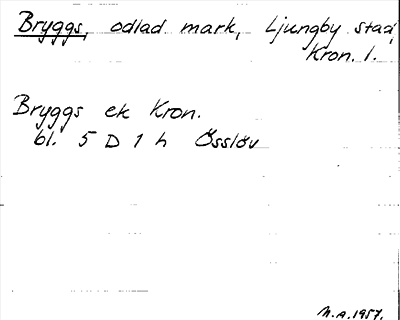 Bryggs, odlad mark, Ljungby stad,
Kron. l.
Bryggs ek Kron.
bl. 5 D 1 h Össlöv
N.A. 1957.